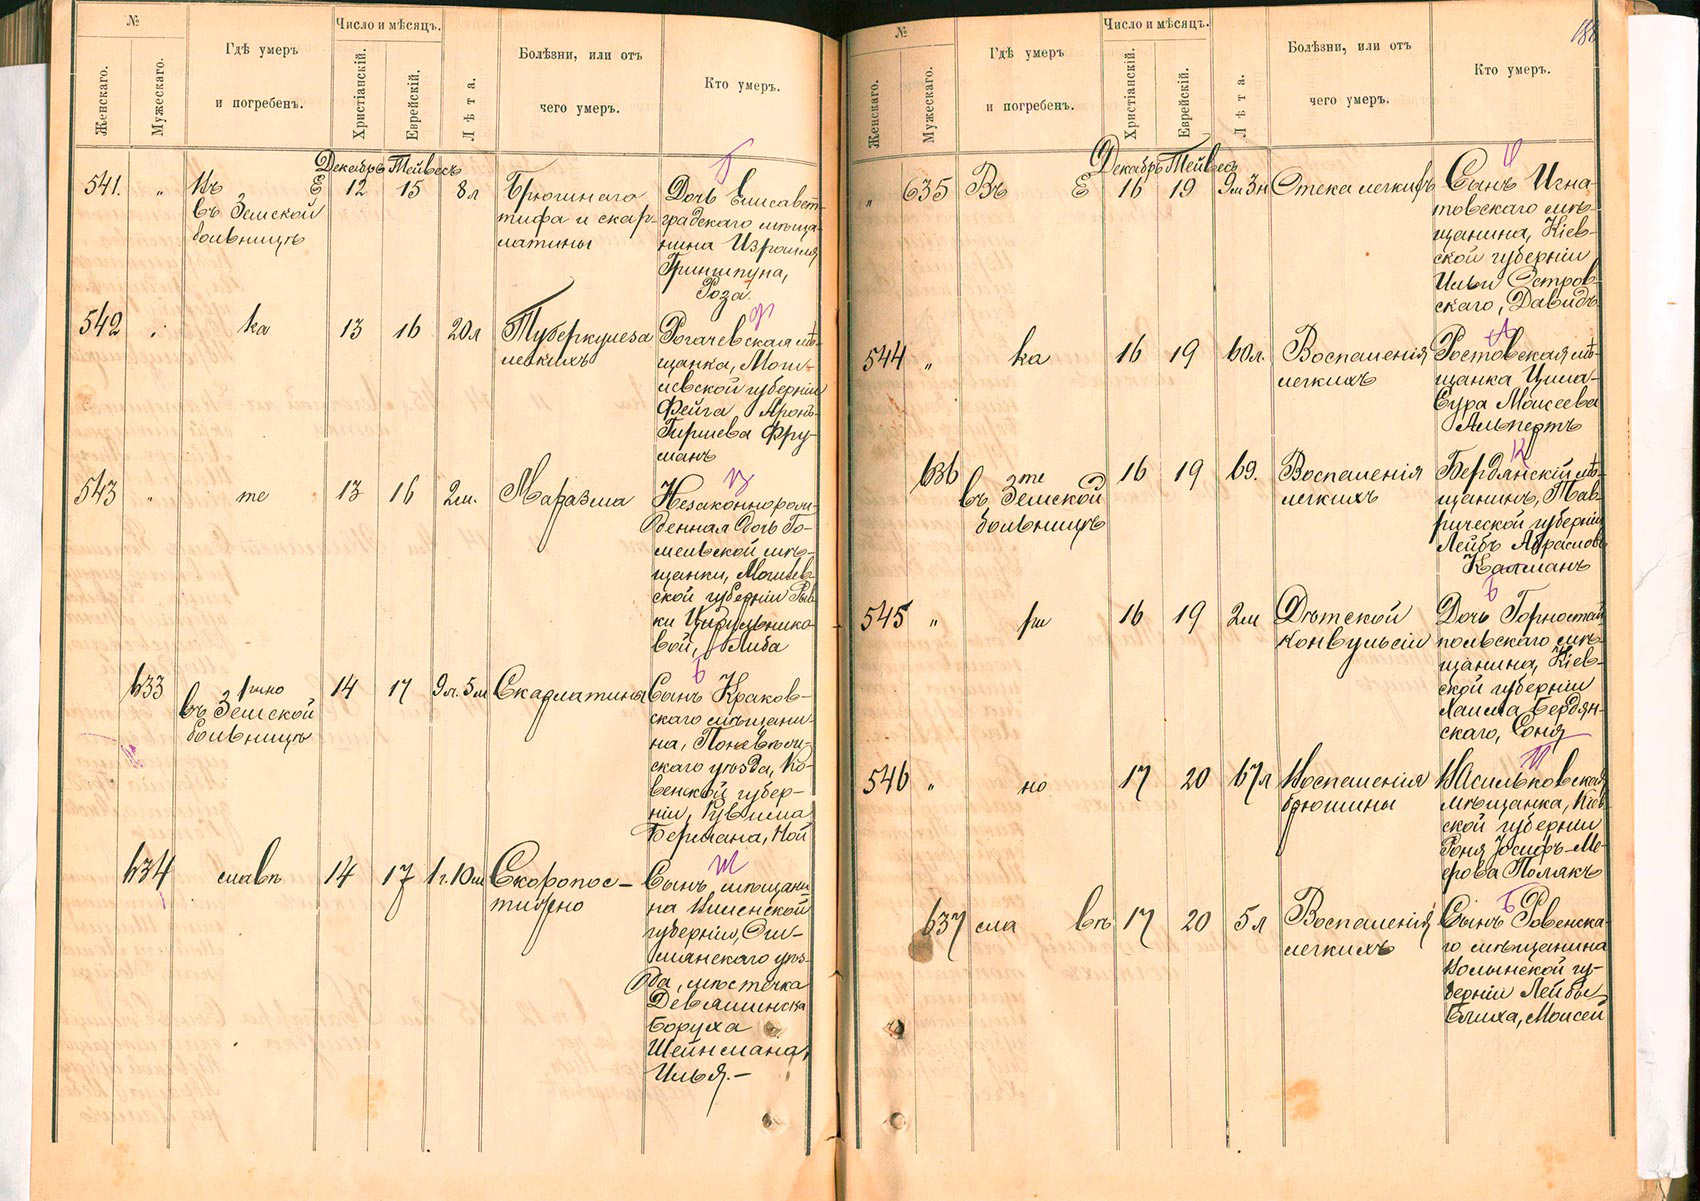 №
Женскаго.
Мужескаго.
Гдѣ умеръ
и погребенъ.
Число и мѣсяцъ.
Христіанскій.
Еврейскій.
Лѣта.
Болѣзни, или отъ
чего умеръ.
Кто умеръ.
Декабрь Тейвесъ
541. „
въ Земской
больницѣ
12 15 8л
Брюшнаго
тифа и скар-
латины
Дочь Елисавет-
градскаго мѣща-
нина Израиля
Гриншпуна,
Роза.
542 „ ка 13 16 20л
Туберкулеза
легкихъ
Рогачевская мѣ-
щанка, Моги-
левской губерніи
Фейга Аронъ-
Гиршева Фру-
манъ
543 „ те 13 16 2м.
Маразма
Незаконнорож-
денная дочь Го-
мельской мѣ-
щанки, Могилев-
ской губерніи Рыв-
ки Цирульнико-
вой, Либа
633
въ Земской
больницѣ
14 17 9л. 5м
Скарлатины
Сынъ Краков-
скаго мѣщани-
на, Поневѣж-
скаго уѣзда, Ко-
венской губер-
ніи, Рувима
Бермана, Ной
634 славѣ 14 17 1г. 10м
Скоропос-
тижно
Сынъ мѣщани-
на Виленской
губерніи, Ош-
мянскаго уѣз-
да, мѣстечка
Боруха
Шейнмана,
Илья. —
№
Женскаго.
Мужескаго.
Гдѣ умеръ
и погребенъ.
Число и мѣсяцъ.
Христіанскій.
Еврейскій.
Лѣта.
Болѣзни, или отъ
чего умеръ.
Кто умеръ.
188
Декабрь Тейвесъ
„ 635 Въ Е 16 19 9м 3н
Отека легкихъ
Сынъ Игна-
товскаго мѣ-
щанина, Кіев-
ской губерніи
Ильи Остров-
скаго, Давидъ
544 „ ка 16 19 60л.
Воспаленія
легкихъ
Ростовская мѣ-
щанка Ципа-
Сура Моисеева
Альпертъ
636 те
въ Земской
больницѣ
16 19 69.
Воспаленія
легкихъ
Бердянскій мѣ-
щанинъ, Тав-
рической губерніи
Лейбъ Абрамовъ
Калманъ
545 „ ри 16 19 2м
Дѣтской
конвульсіи
Дочь Горностай-
польскаго мѣ-
щанина, Кіев-
ской губерніи
Хаима Бердян-
скаго, Соня
546 „ но 17 20 67л
Воспаленія
брюшины
Васильковская
мѣщанка, Кіев-
ской губерніи
Роня Іосифъ-Ме-
ерова Полякъ
637 сла вѣ 17 20 5л
Воспаленія
легкихъ
Сынъ Ровенска-
го мѣщанина
Волынской гу-
берніи Лейбы
Блиха, Моисей